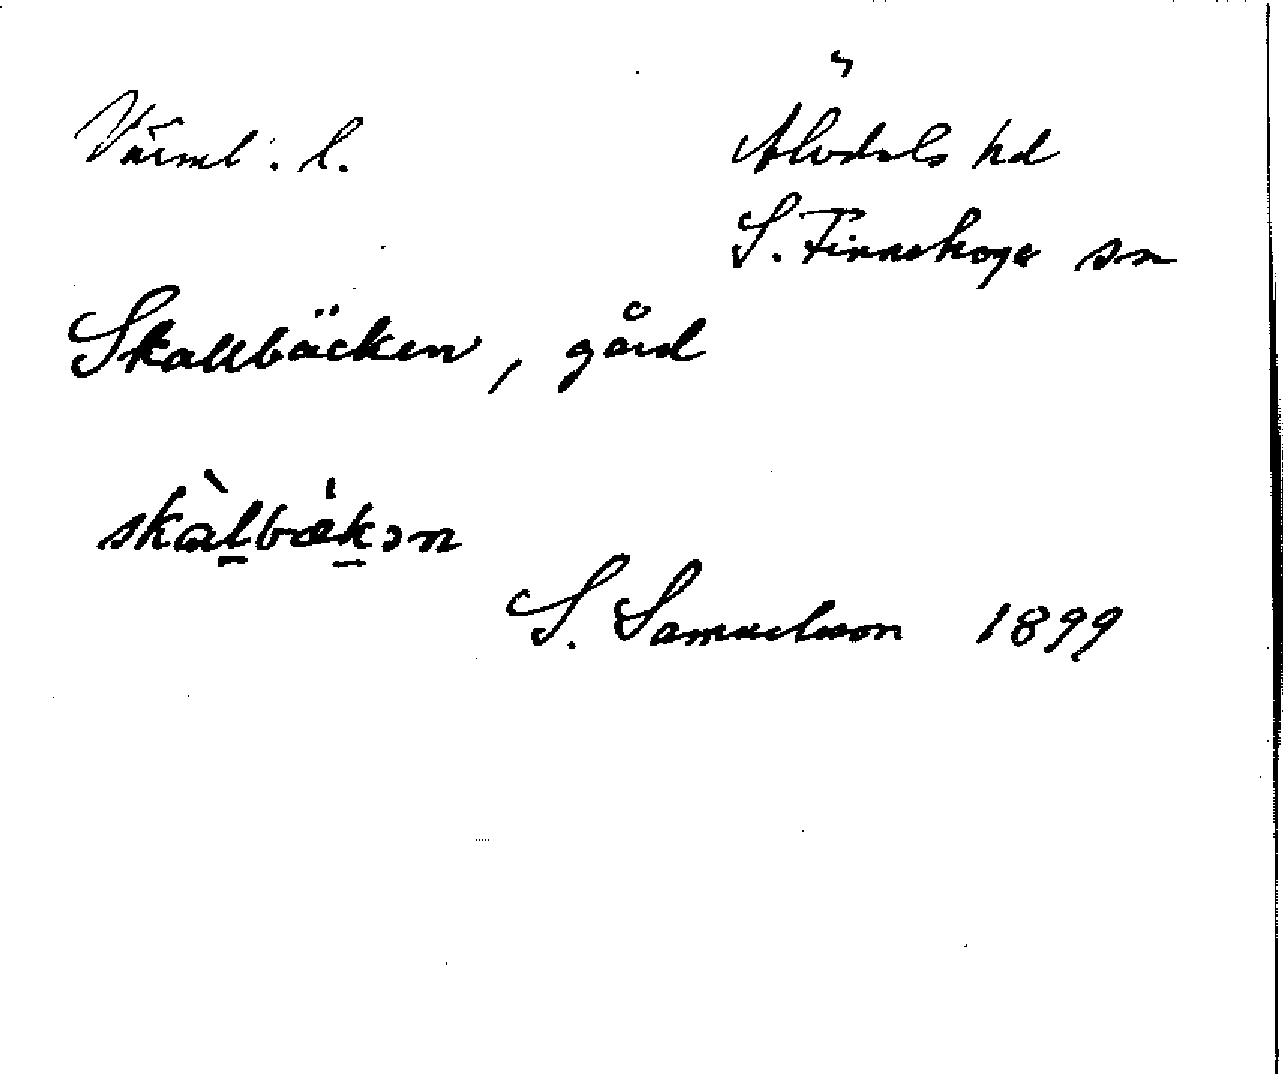 Värml. l.
Älvdals hd
S. Finnskoga sn
Skallbäcken, gård
skàl̠bæ̍k̠ən
S. Samuelsson 1899